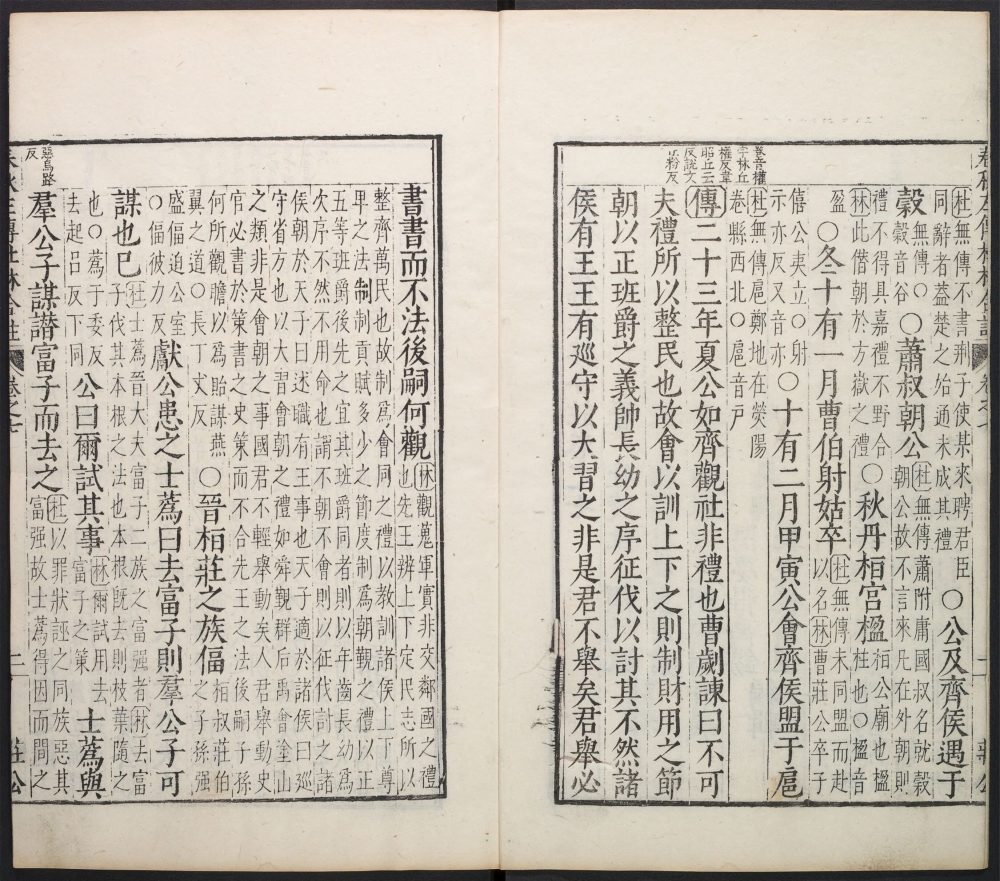 春秋左傳杜林合註 卷之七 二十 莊公
杜無傳不書荆子使某來聘君臣
同辭者葢楚之始通未成其禮 〇公及齊侯遇于
穀穀音谷〇蕭叔朝公杜無傳蕭附庸國叔名就穀
朝公故不言來凡在外朝則
禮不得具嘉禮不野合
林此僭朝於方嶽之禮 〇秋丹桓宮楹桓公廟也楹
柱也〇楹音
盈〇冬十有一月曹伯射姑卒杜無傳未同盟而赴
以名林曹莊公卒于
僖公夷立〇射
示亦反又音亦〇十有二月甲寅公會齊侯盟于扈
杜無傳扈鄭地在滎陽
卷縣西北〇扈音戸
卷音權
字林丘
權反韋
昭丘云
反說文
丘粉反
傳二十三年夏公如齊觀社非禮也曹劌諫曰不可
夫禮所以整民也故會以訓上下之則制財用之節
朝以正班爵之義帥長幼之序征伐以討其不然諸
侯有王王有巡守以大習之非是君不舉矣君舉必
書書而不法後嗣何觀林觀蒐軍實非交鄰國之禮
也先王辨上下定民志所以
整齊萬民也故制爲會同之禮以教訓諸侯上下尊
卑之法制制貢賦多少之節度制爲朝覲之禮以正
五等班爵後先之宜其班爵同者則以年齒長幼爲
次序不然不用命也謂不朝不會則以征伐討之諸
侯朝於天子曰述職有王事也天子適於諸侯曰巡
守省方也以大習會朝之禮如舜觀群后禹會塗山
之類非是會朝之事國君不輕舉動矣人君舉動史
官必書於策書之史策而不合先王之法後嗣子孫
何所觀瞻以爲貽謀燕
翼之道〇長丁丈反 〇晉桓莊之族偪桓叔莊伯
之子孫强
盛偪迫公室
〇偪彼力反 獻公患之士蔿曰去富子則羣公子可
謀也已杜士蔿晉大夫富子二族之富强者林去富
子伐其本根之法也本根旣去則枝葉隨之
也〇蔿于委反
去起呂反下同 公曰爾試其事林爾試用去
富子之策 士蔿與
惡烏路
反
羣公子謀譖富子而去之杜以罪狀誣之同族惡其
富强故士蔿得因而間之
春秋左傳杜林合註 卷之七 二十一 莊公